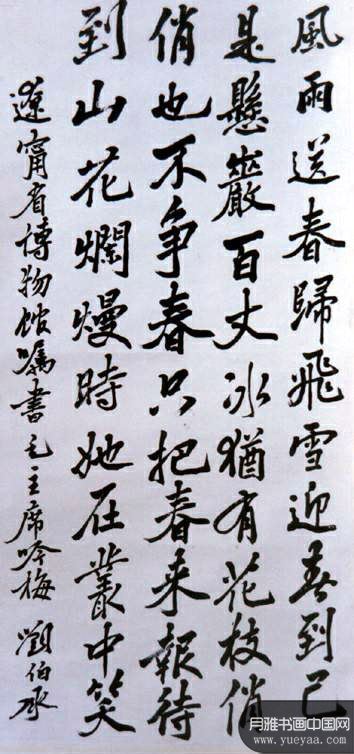 風雨送春歸飛雪迎春到已
是懸巖百丈冰猶有花枝俏
俏也不争春只把春来報待
到山花爛熳時她在叢中笑
遼甯省博物館嘱書毛主席咏梅 劉伯承
月雅书画中国网
www.yueyaa.com